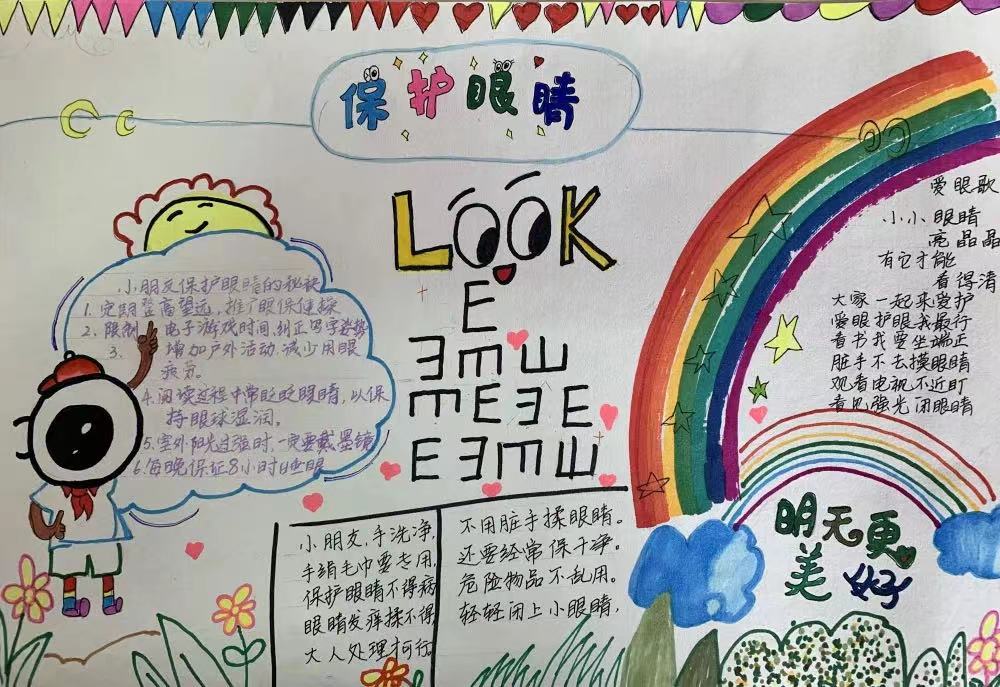 保护眼睛
LOOK
E
ƎMEШ
MEƎE
EƎMШ
小朋友保护眼睛的秘诀
1. 定期登高望远，推广眼保健操
2. 限制 电子游戏时间，纠正写字姿势
3. 增加户外活动，减少用眼
疲劳。
4. 阅读过程中常眨眨眼睛，以保
持眼球湿润。
5. 室外阳光过强时，一定要戴墨镜
6. 每晚保证8小时睡眠
小朋友，手洗净，
手绢毛巾要专用，
保护眼睛不得病
眼睛发痒揉不得
大人处理才可行
不用脏手揉眼睛。
还要经常保干净。
危险物品不乱用。
轻轻闭上小眼睛，
爱眼歌
小小眼睛
亮晶晶
有它才能
看得清
大家一起来爱护
爱眼护眼我最行
看书我要坐端正
脏手不去摸眼睛
观看电视不近盯
看见强光闭眼睛
明天更
美好